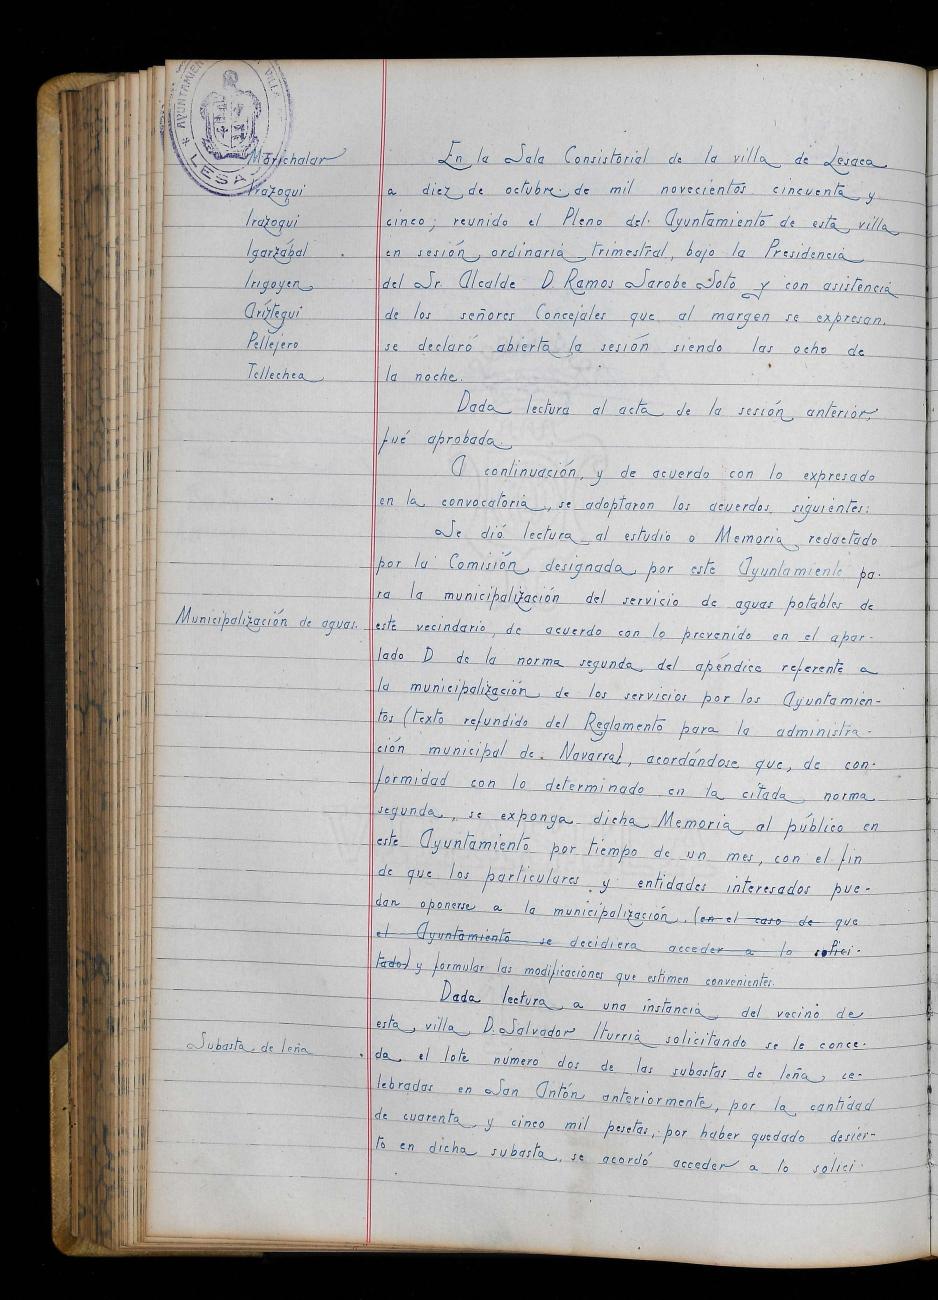 AYUNTAMIEN VILLA
LESACA
Morichalar
Irazoqui
Irazoqui
Igarzábal
Irigoyen
Aríztegui
Pellejero
Tellechea
En la Sala Consistorial de la villa de Lesaca
a diez de octubre de mil novecientos cincuenta y
cinco; reunido el Pleno del Ayuntamiento de esta villa
en sesión ordinaria trimestral, bajo la Presidencia
del Sr. Alcalde D. Ramos Sarobe Soto y con asistencia
de los señores Concejales que al margen se expresan,
se declaró abierta la sesión siendo las ocho de
la noche.
Dada lectura al acta de la sesión anterior,
fué aprobada.
A continuación, y de acuerdo con lo expresado
en la convocatoria, se adoptaron los acuerdos siguientes:
Municipalización de aguas.
Se dió lectura al estudio o Memoria redactado
por la Comisión designada por este Ayuntamiento pa-
ra la municipalización del servicio de aguas potables de
este vecindario, de acuerdo con lo prevenido en el apar-
tado D de la norma segunda del apéndice referente a
la municipalización de los servicios por los Ayuntamien-
tos (texto refundido del Reglamento para la administra-
ción municipal de Navarra), acordándose que, de con-
formidad con lo determinado en la citada norma
segunda, se exponga dicha Memoria al público en
este Ayuntamiento por tiempo de un mes, con el fin
de que los particulares y entidades interesados pue-
dan oponerse a la municipalización, (en el caso de que
el Ayuntamiento se decidiera acceder a lo solici-
tado) y formular las modificaciones que estimen convenientes.
Subasta de leña
Dada lectura a una instancia del vecino de
esta villa D. Salvador Iturria solicitando se le conce-
da el lote número dos de las subastas de leña ce-
lebradas en San Antón anteriormente, por la cantidad
de cuarenta y cinco mil pesetas, por haber quedado desier-
to en dicha subasta, se acordó acceder a lo solici-